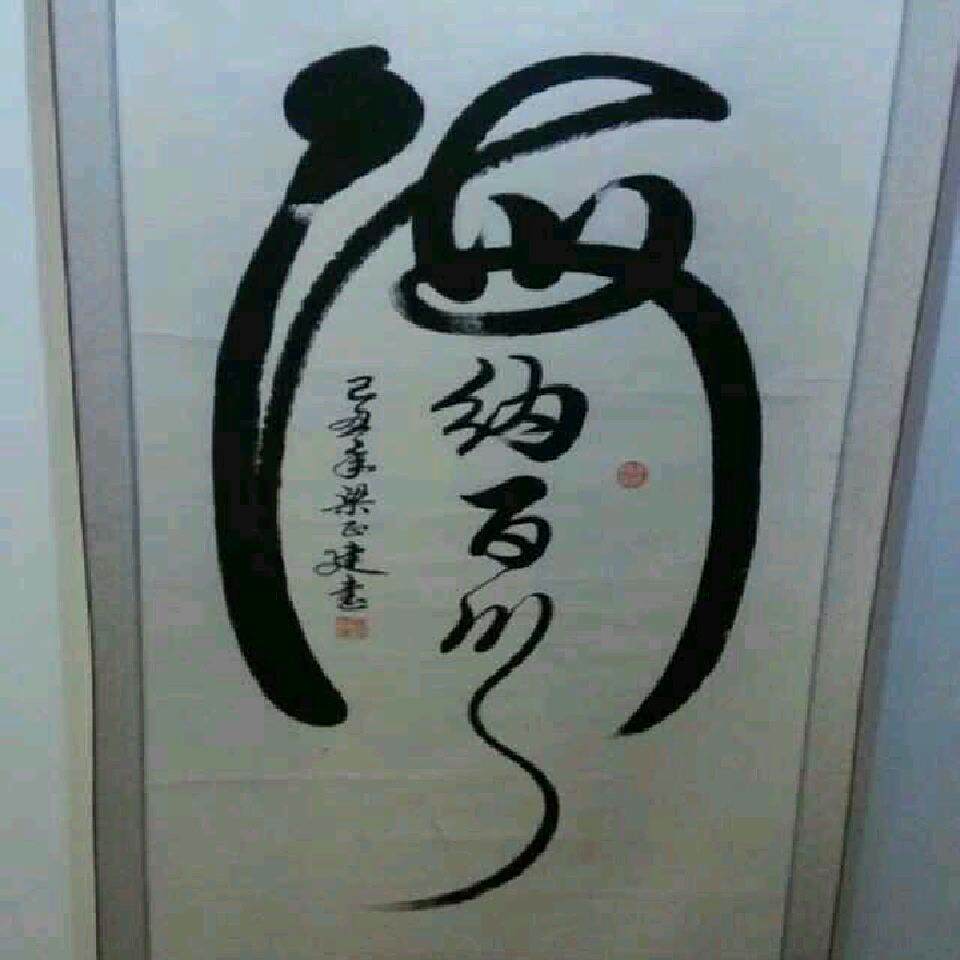 海纳百川
己丑年梁正建书